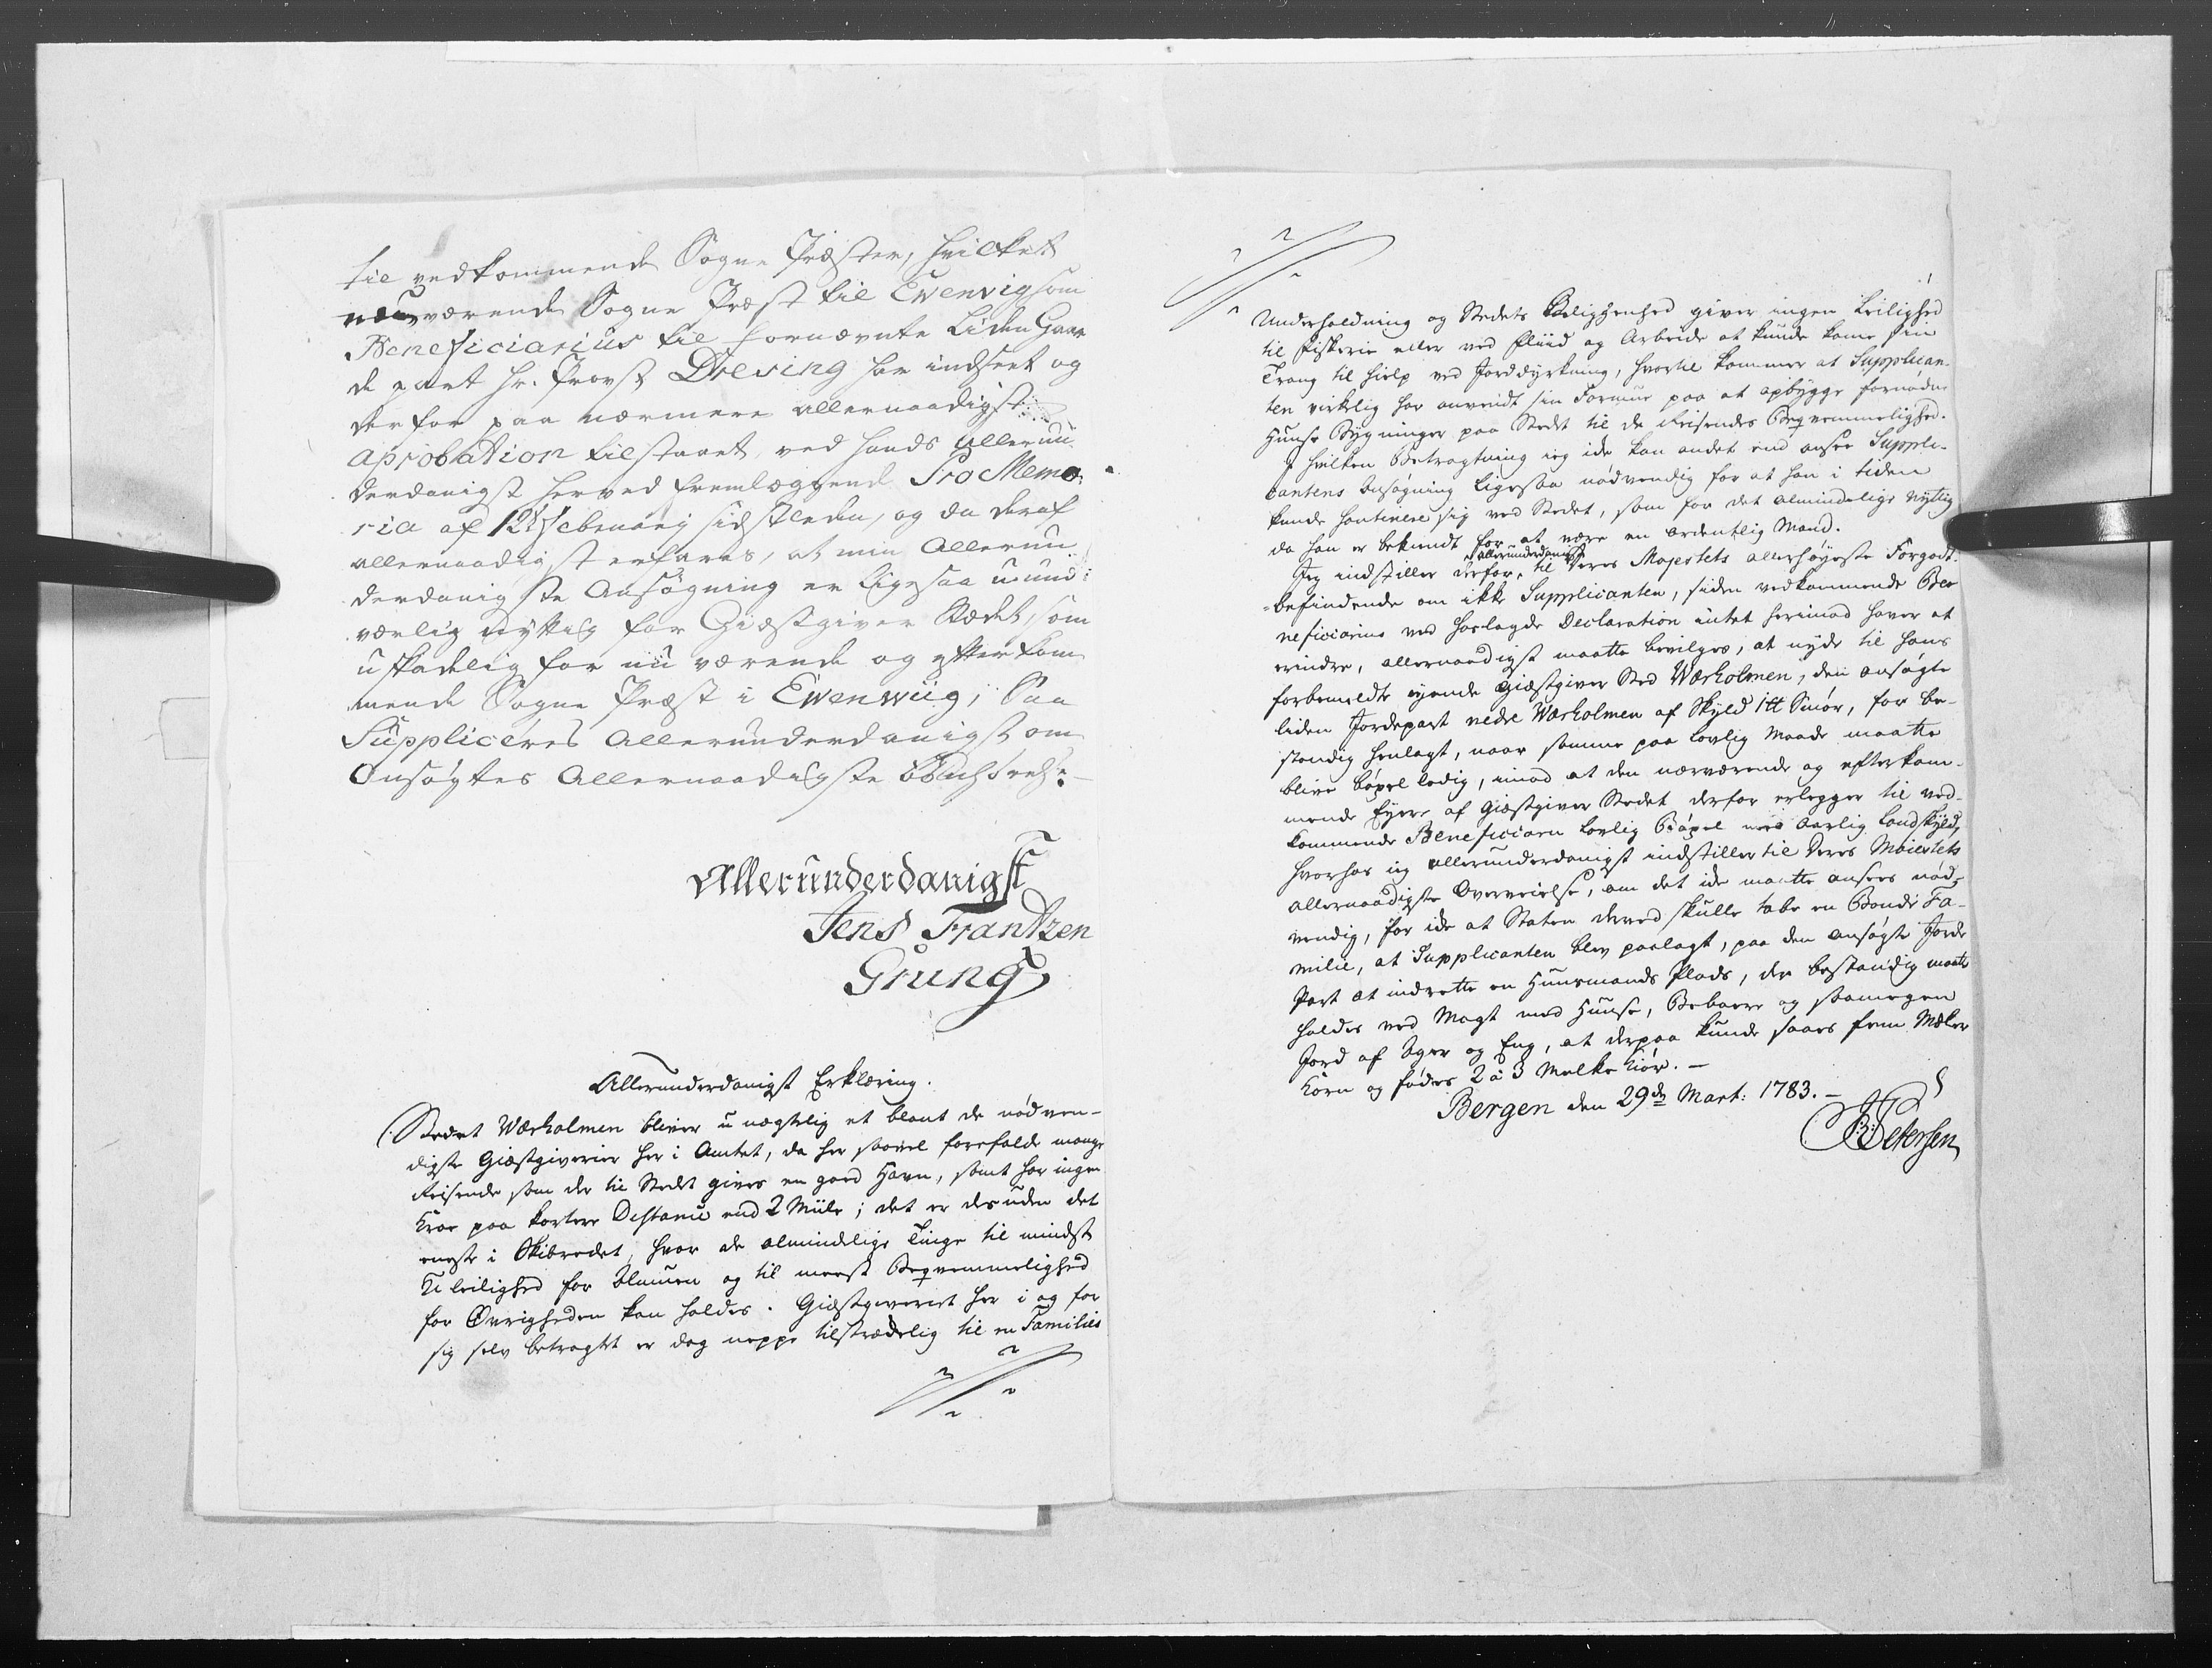 til vedkommende Sogne Præster, hvilket
nærværende Sogne Præst til Evenvig som
Beneficiarius til fornævnte Liden Gaar
de part Hr. Provst Dresing har indseet og
derfor paa nærmere allernaadigst
aprobation tilstaaet, ved hands allerun
derdanigst herved fremlæggende Pro Memo
ria af 12te February sidstleden, og da deraf
allernaadigst erfares, at min Allerun
derdanigste Ansøgning er ligesaa uund
værlig nyttig for Giæstgiver Stædet, som
uskadelig for nu værende og efterkom
mende Sogne Præst i Evenwiig; Saa
Suppliceres Allerunderdanigst om
Ansøgtes Allernaadigste Bønhørelse
Allerunderdanigst
Jens Frantzen
Grung
Allerunderdanigst Erklæring.
Stedet Wærholmen bliver unægtelig et blant de nødven-
digste Giæstgiverier her i Amtet, da her saavel forefalde mange
Reisende som der til Stedet gives en goed Havn, samt har ingen
Kroe paa kortere Distance end 2 Miile; det er desuden det
eneste i Skibredet, hvor de almindelige Tinge til mindst
Uleilighed for Almuen og til meest Beqvemmelighed
for Øvrigheden kan holdes. Giæstgiveriet her i og for
sig selv betragtet er dog neppe tilstrækkelig til en Familiæ
Underholdning og Stedets Beliggenhed giver ingen Leilighed
til Fiskerie eller ved Fliid og Arbeide at kunde kome sin
Trang til Hielp ved Jorddyrkning, hvortil kommer at Supplican-
ten virkelig har anvendt sin Formue paa at opbygge fornødne
Huuse Bygninger paa Stedet til de Reisendes Beqvemmelighed.
I hvilken Betragtning jeg ikke kan andet end ansee Suppli-
cantens Ansøgning ligesaa nødvendig for at han i tiden
kunde soutinere sig ved Stedet, som for det almindelige nyttig
da han er bekiendt for at være en ordentlig Mand.
allerunderdanigst
Jeg indstiller derfor til Deres Majestets allerhøyeste Forgodt-
befindende om ikke Supplicanten, siden vedkommende Be-
neficiarius ved hoslagde Declaration intet herimod haver at
erindre, allernaadigst maatte bevilges, at nyde til hans
forbemeldte eyende Giæstgiver Sted Wærholmen, den ansøgte
liden Jordepart nedre Wærholmen af Skyld 1 ℔ Smør, for be-
standig henlagt, naar samme paa lovlig Maade maatte
blive bøxel ledig, imod at den nærværende og efterkom-
mende Eyere af Giæstgiver Stedet derfor erlegger til ved-
kommende Beneficiarii lovlig Bøxel med aarlig Landskyld,
hvorhos jeg allerunderdanigst indstiller til Deres Maiestets
allernaadigste Overveielse, om det ikke maatte ansees nød-
vendig, for ikke at Staten derved skulle tabe en Bonde Fa-
milie, at Supplicanten blev paalagt, paa den ansøgte Jorde
Part at indrette en Huusmands Plads, der bestandig maatte
holdes ved Magt med Huuse, Beboere og saamegen
Jord af Ager og Eng, at derpaa kunde saaes frem Mæler
Korn og fødes 2 à 3 Melke Kiør. —
Bergen den 29de Mart: 1783. —
Petersen